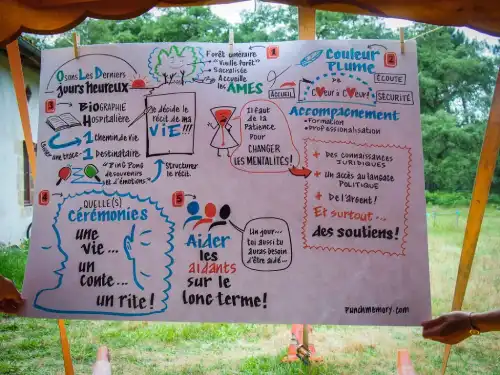 Osons Les Derniers
Jours heureux
Forêt cinéraire
"Vieille forêt"
Sacralisée
Accueille
les ÂMES
1
Couleur
Plume
2
ÉCOUTE
SÉCURITÉ
DE
CŒUR à CŒUR!
ACCUEIL
Accompagnement
Formation
Professionalisation
3
BIOGRAPHIE
Hospitalière
Laisser
une trace
1 Chemin de vie
1 Destinataire
"Ping Pong
de souvenirs
et d'émotions."
Je décide le
récit de ma
ViE!!!
Structurer
le récit.
Il faut
de la
Patience
pour
CHANGER
LES MENTALITÉS!
+ Des connaissances
JURIDIQUES
+ Un accès au langage
POLITIQUE
+ De l'argent!
Et surtout...
des soutiens!
4
QUELLE(S)
Cérémonies
une
vie...
un
conte...
un rite!
5
Aider
les
aidants
sur le
long terme!
Un jour...
toi aussi tu
auras besoin
d'être aidé...
punchmemory.com